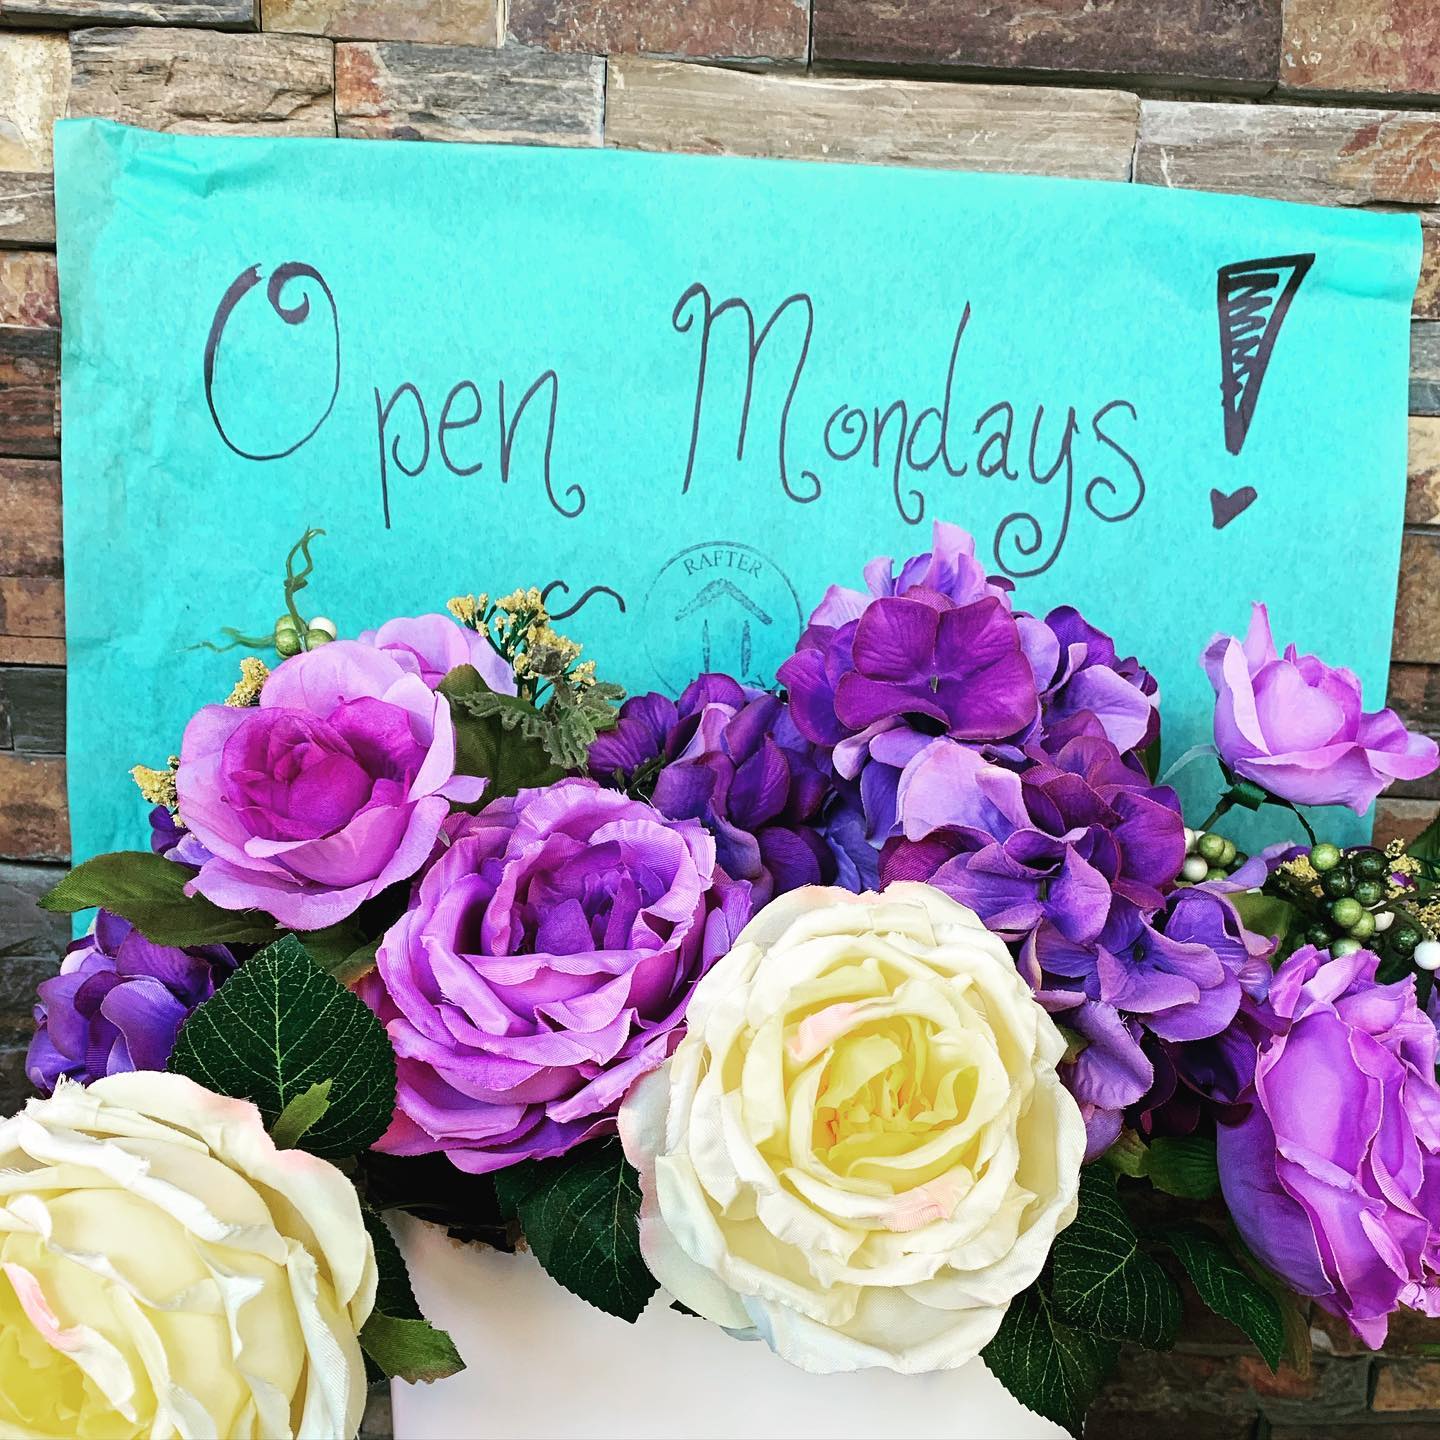 Open Mondays!
RAFTER